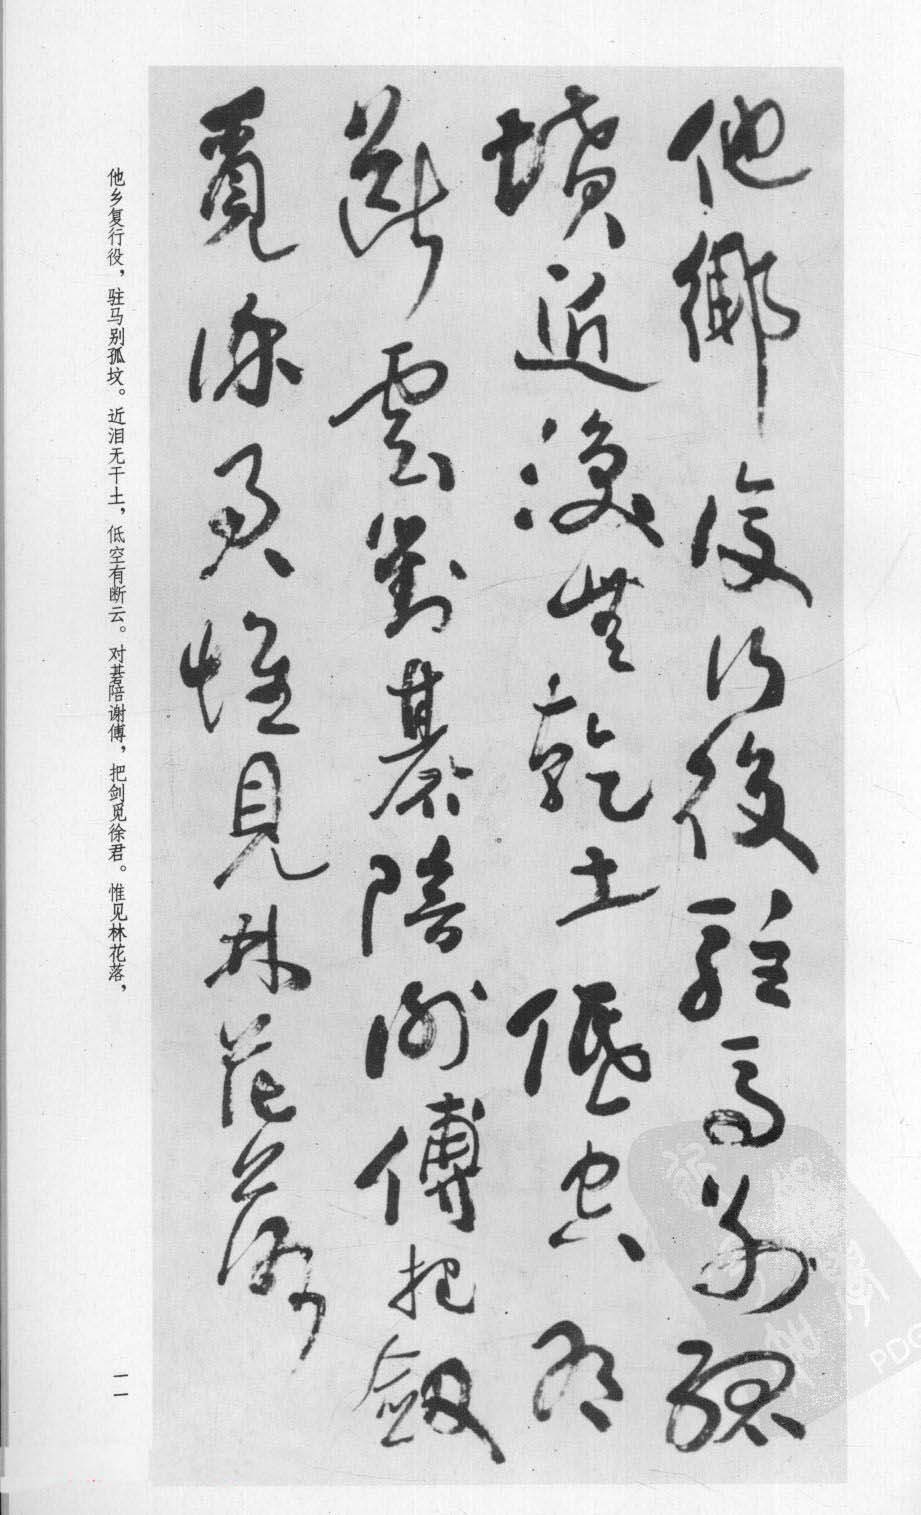 他鄉復行役駐馬別孤
墳近淚無乾土低空有
斷雲對棊陪謝傅把劒
覓徐君惟見林花落
他乡复行役，驻马别孤坟。近泪无干土，低空有断云。对棊陪谢傅，把剑觅徐君。惟见林花落，
一一
PDG